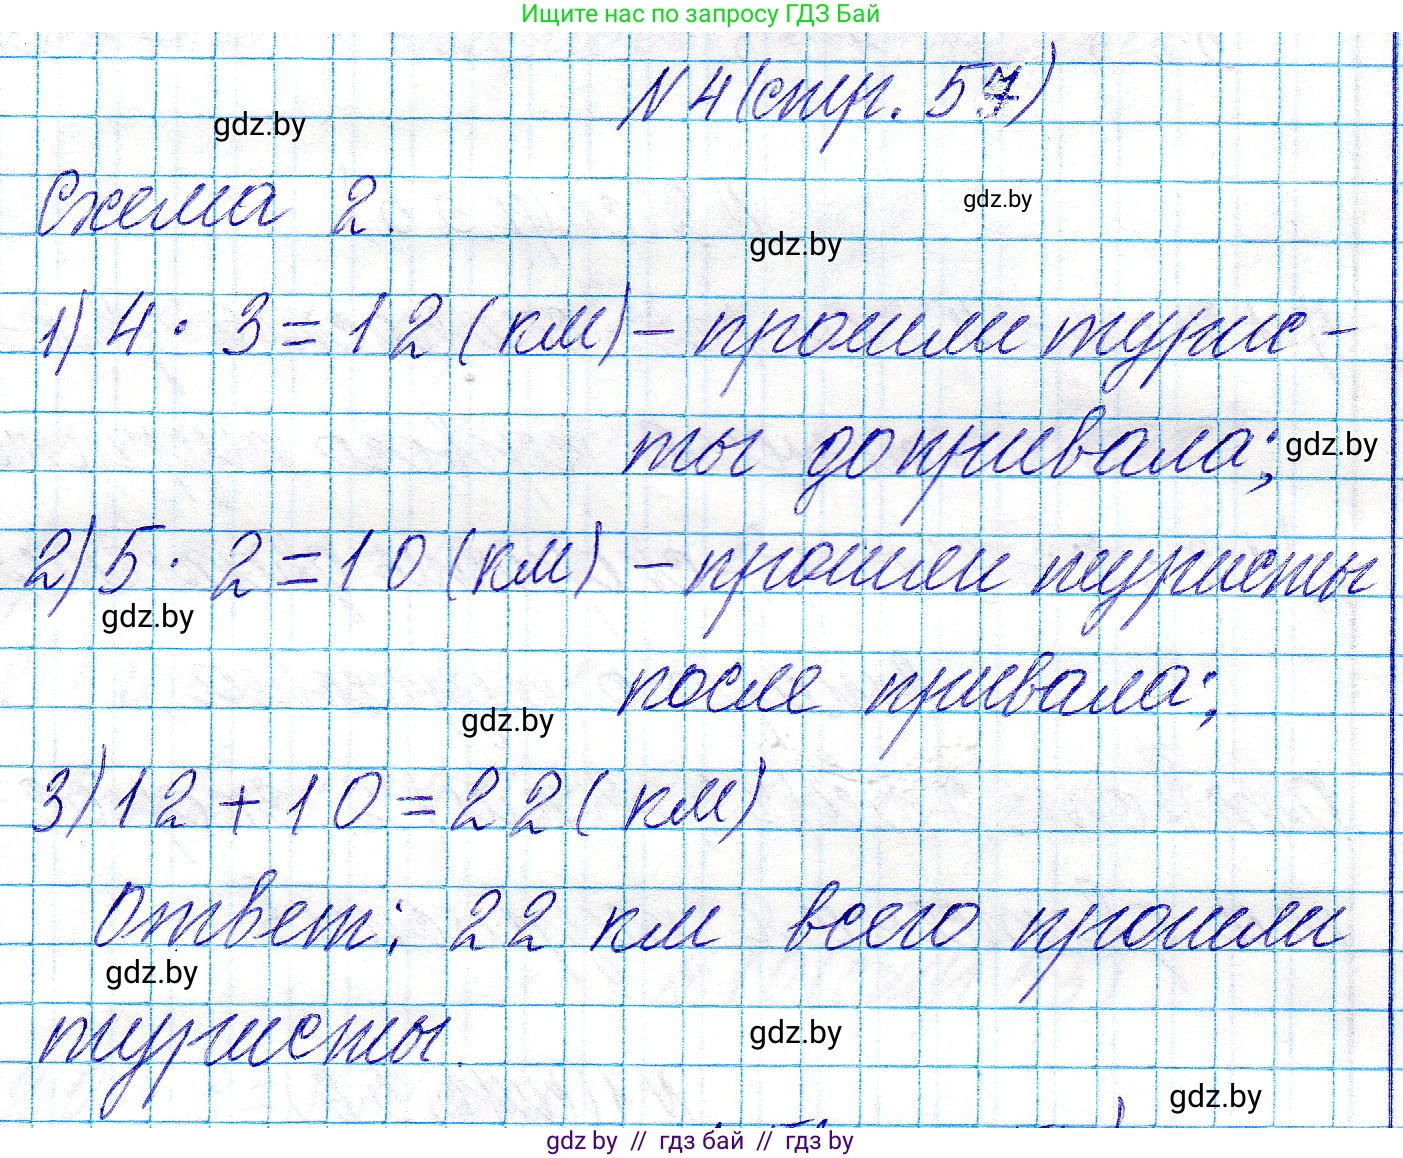 Ищите нас по запросу ГДЗ Бай
N 4 (стр. 57)
gdz.by
Схема 2.
gdz.by
gdz.by
1) 4 · 3 = 12 (км) – прошли турис-
ты до привала;
gdz.by
2) 5 · 2 = 10 (км) – прошли туристы
gdz.by
после привала;
gdz.by
3) 12 + 10 = 22 (км)
Ответ: 22 км всего прошли
gdz.by
туристы.
gdz.by
gdz.by
gdz by // гдз бай // гдз by